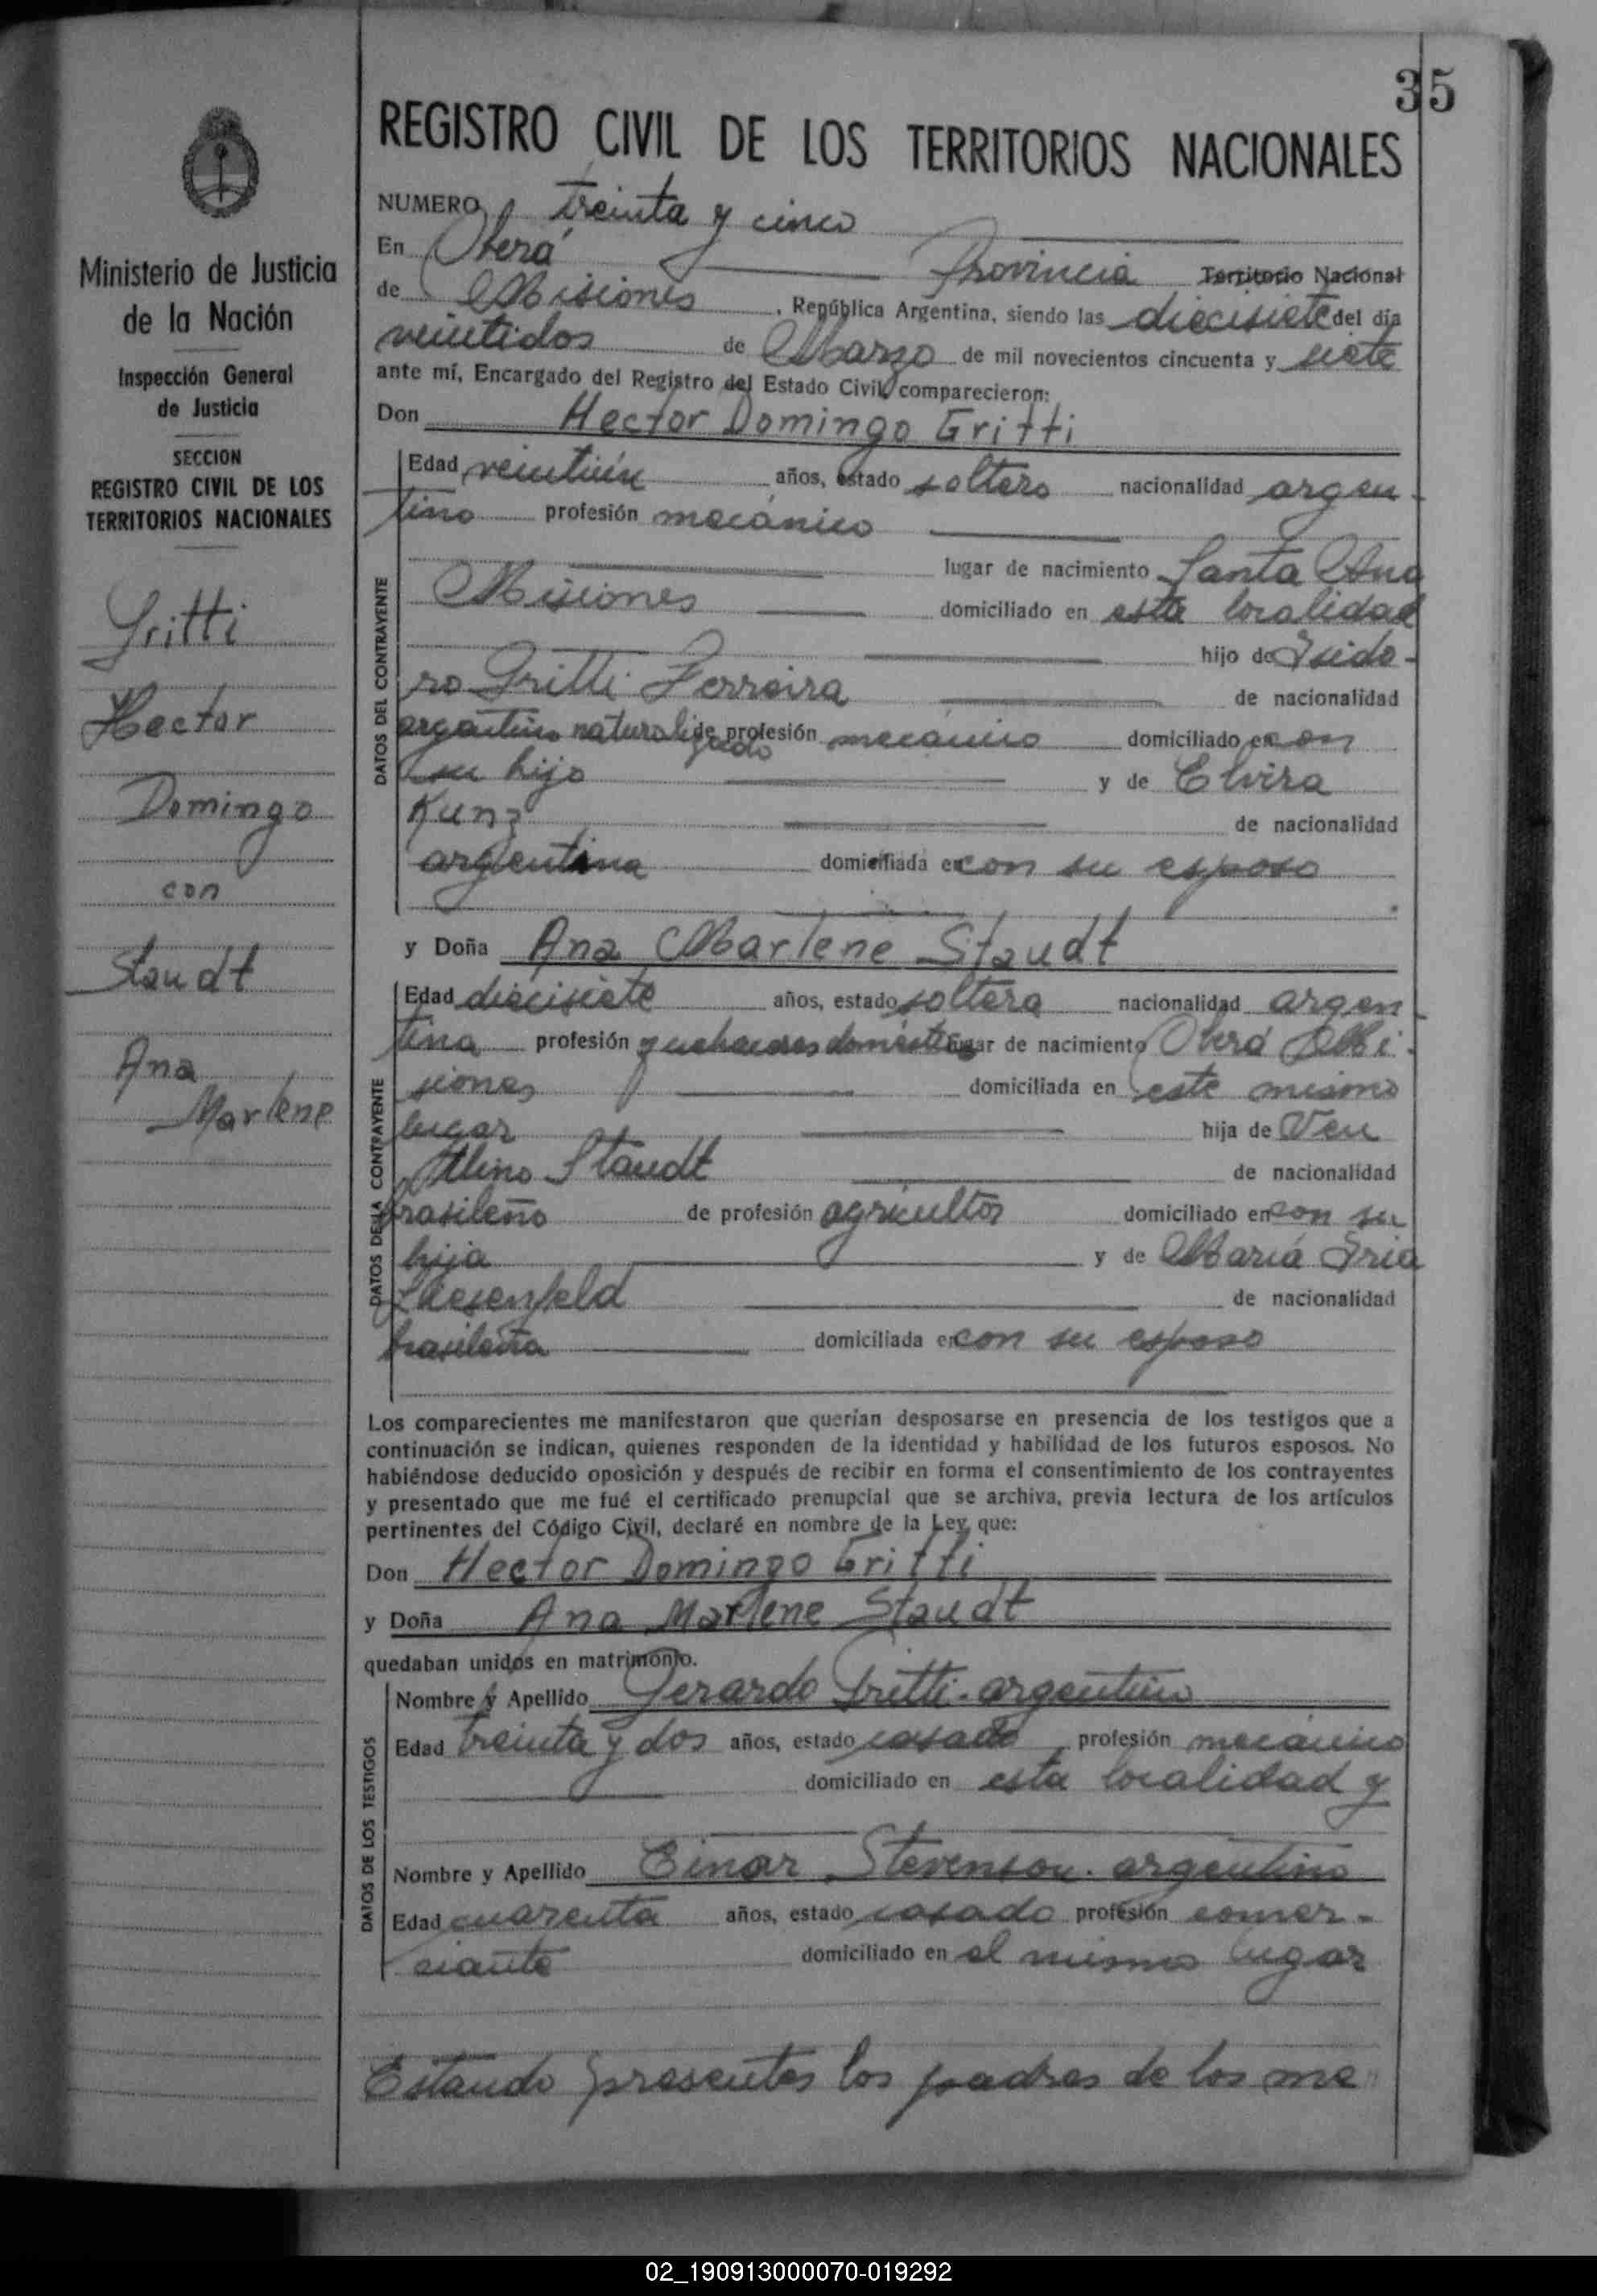 35
REGISTRO CIVIL DE LOS TERRITORIOS NACIONALES
Ministerio de Justicia
de la Nación
Inspección General
de Justicia
SECCION
REGISTRO CIVIL DE LOS
TERRITORIOS NACIONALES
Gritti
Hector
Domingo
con
Staudt
Ana
Marlene
NUMERO treinta y cinco
En Oberá Provincia Territorio Nacional
de Misiones, República Argentina, siendo las diecisiete del día
veintidos de Marzo de mil novecientos cincuenta y siete
ante mí, Encargado del Registro del Estado Civil comparecieron:
Don Hector Domingo Gritti
DATOS DEL CONTRAYENTE
Edad veintiún años, estado soltero nacionalidad argen-
tino profesión mecánico
lugar de nacimiento Santa Ana
Misiones domiciliado en esta localidad
hijo de Isido-
ro Gritti Ferreira de nacionalidad
argentino naturalizado de profesión mecánico domiciliado en con
su hijo y de Elvira
Kunz de nacionalidad
argentina domiciliada en con su esposo
y Doña Ana Marlene Staudt
DATOS DE LA CONTRAYENTE
Edad diecisiete años, estado soltera nacionalidad argen-
tina profesión quehaceres domésticos lugar de nacimiento Oberá Mi-
siones domiciliada en este mismo
lugar hija de Veu
Albino Staudt de nacionalidad
brasileño de profesión agricultor domiciliado en con su
hija y de María Iria
Liesenfeld de nacionalidad
brasileña domiciliada en con su esposo
Los comparecientes me manifestaron que querían desposarse en presencia de los testigos que a
continuación se indican, quienes responden de la identidad y habilidad de los futuros esposos. No
habiéndose deducido oposición y después de recibir en forma el consentimiento de los contrayentes
y presentado que me fué el certificado prenupcial que se archiva, previa lectura de los artículos
pertinentes del Código Civil, declaré en nombre de la Ley, que:
Don Hector Domingo Gritti
y Doña Ana Marlene Staudt
quedaban unidos en matrimonio.
DATOS DE LOS TESTIGOS
Nombre y Apellido Gerardo Gritti-argentino
Edad treinta y dos años, estado casado, profesión mecánico
domiciliado en esta localidad y
Nombre y Apellido Einar Stevenson-argentino
Edad cuarenta años, estado casado profesión comer-
ciante domiciliado en el mismo lugar
Estando presentes los padres de los me
02_190913000070-019292